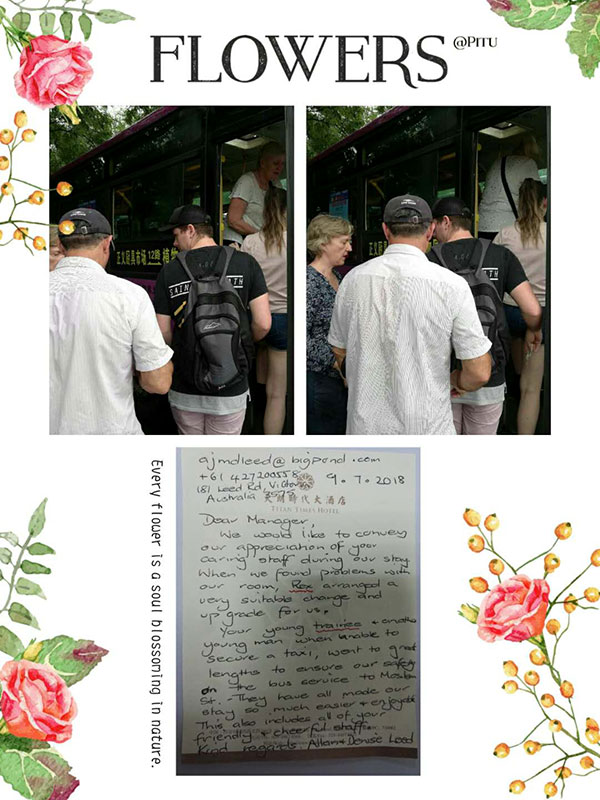 FLOWERS @PITU
正义厨具市场 12路 植物
SAIN TH
正义厨具市场 12路
ajmdleed@bigpond.com
+61 427200558 9.7.2018
181 Leed Rd, Victoria
Australia
天朗時代大酒店
TITAN TIMES HOTEL
Dear Manager,
We would like to convey
our appreciation of your
caring staff during our stay.
When we found problems with
our room, Rex arranged a
very suitable change and
up grade for us.
Your young trainee + another
young man when unable to
secure a taxi, went to great
lengths to ensure our safety
on the bus service to
St. They have all made our
stay so much easier + enjoyable
This also includes all of your
friendly + cheerful staff.
Kind regards Allan + Denise Leed
Every flower is a soul blossoming in nature.